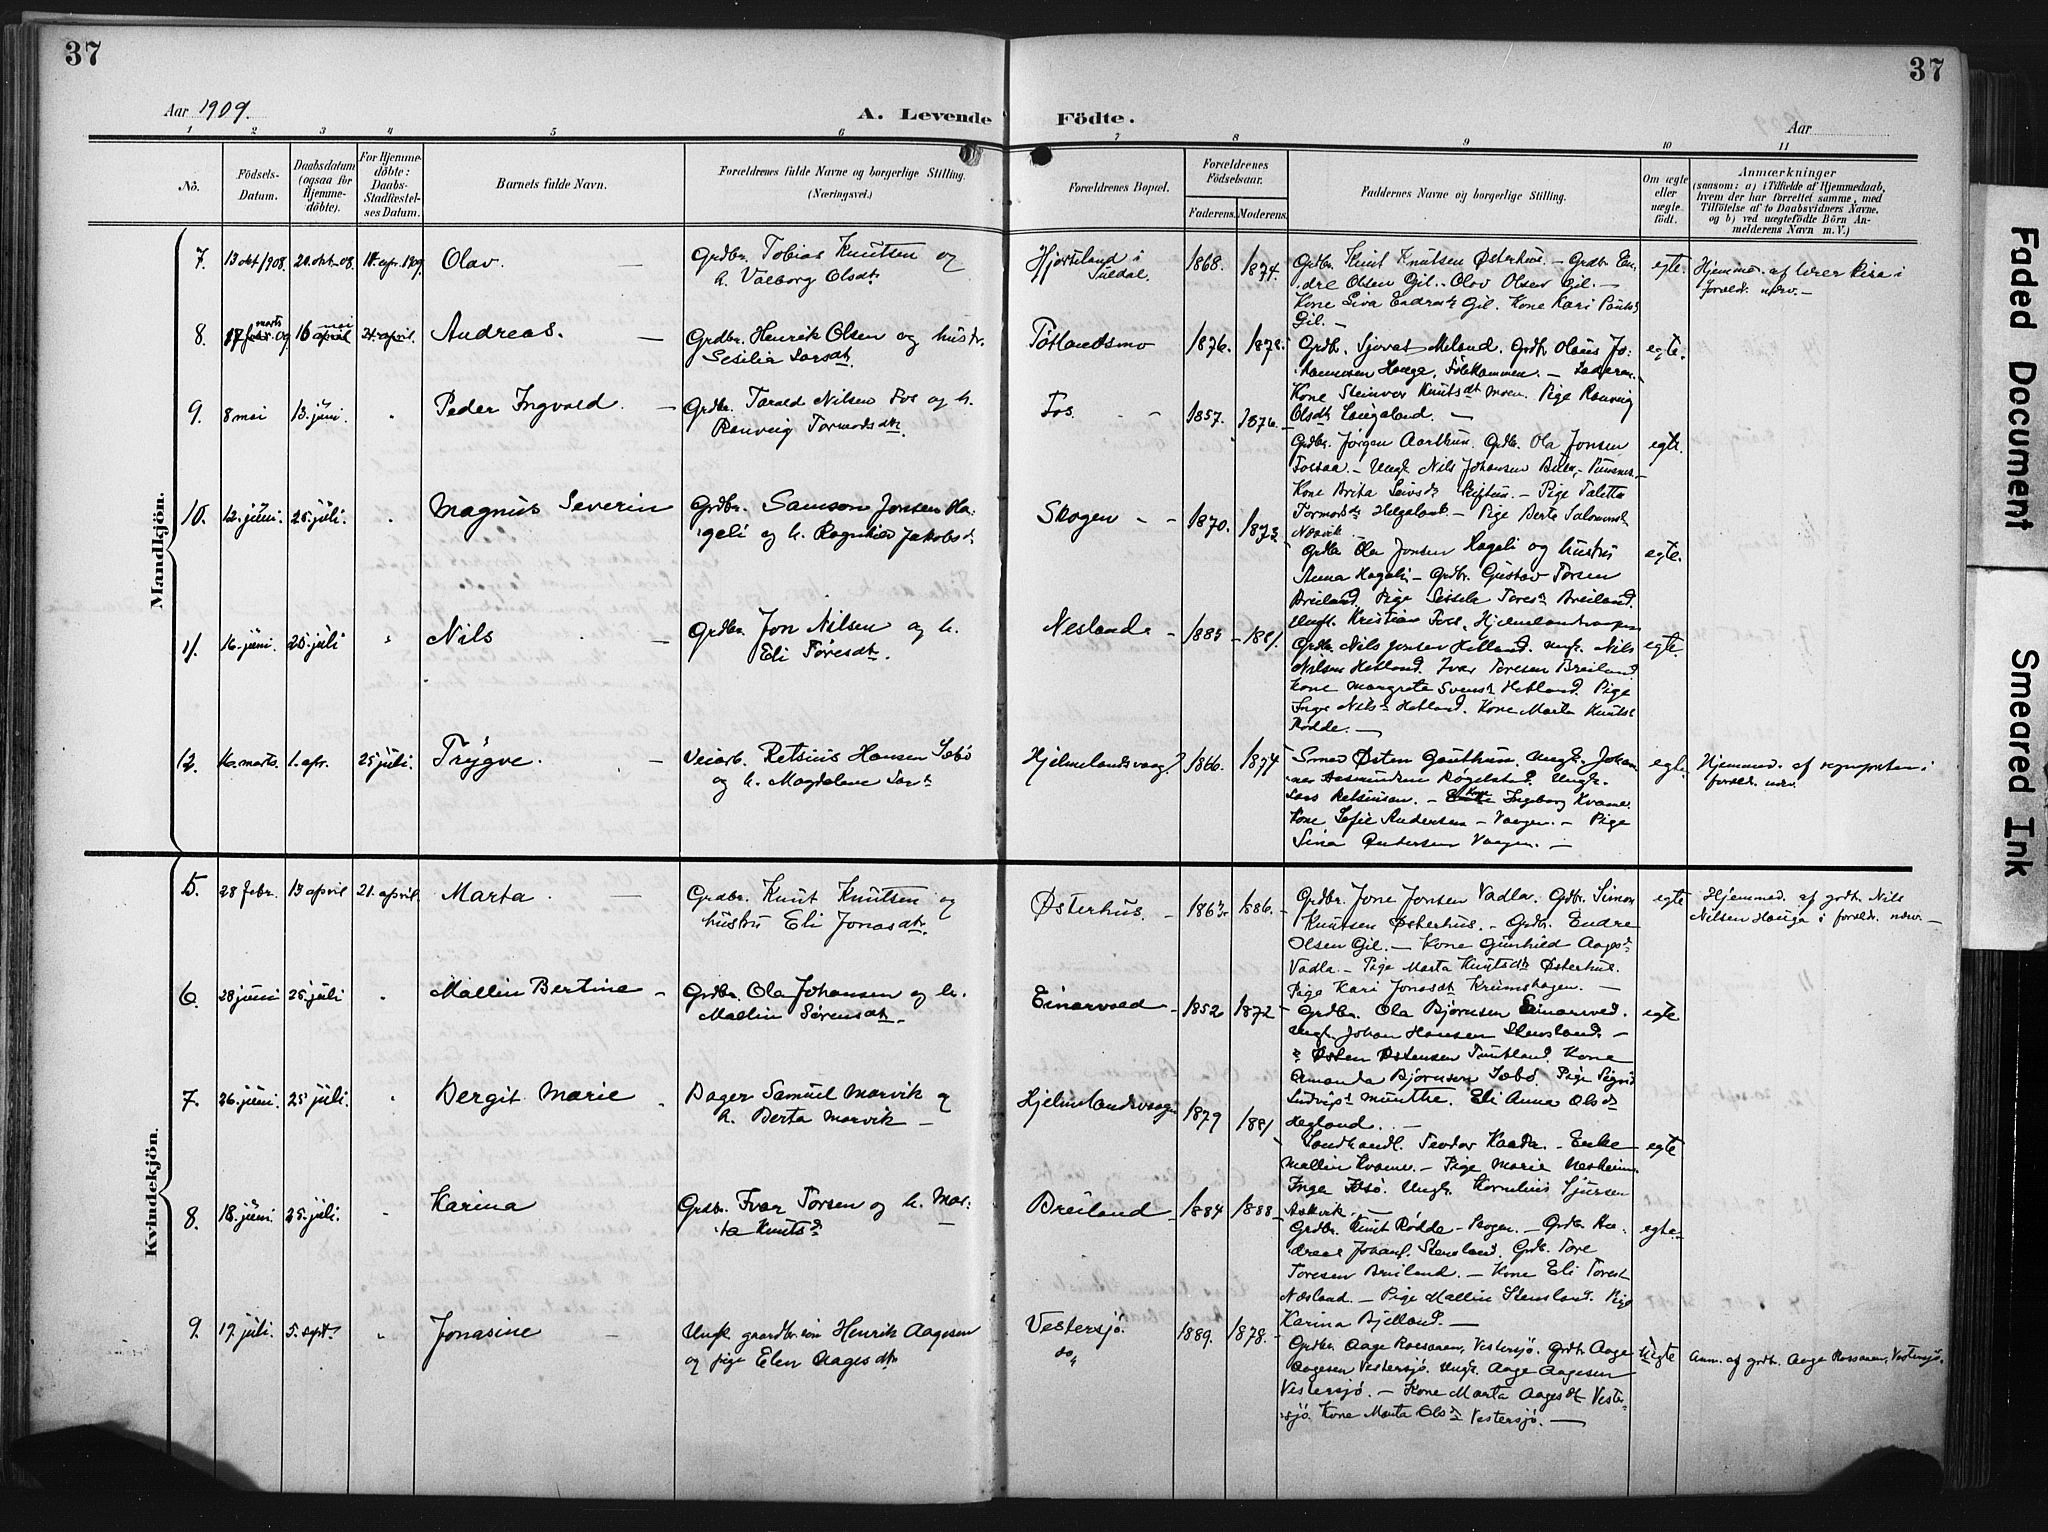 37
37
Aar 1909.
A. Levende
Födte.
Aar
1 2 3 4 5 6 7 8 9 10 11
No.
Födsels-Datum.
Daabsdatum (ogsaa for Hjemme-döbte).
For Hjemme-döbte: Daabs-Stadfæstel-ses Datum.
Barnets fulde Navn.
Forældrenes fulde Navne og borgerlige Stilling.
(Næringsvei.)
Forældrenes Bopæl.
Forældrenes Födselsaar.
Faderens. Moderens.
Faddernes Navne og borgerlige Stilling.
Om ægte eller uægte födt.
Anmærkninger
(saasom: a) i Tilfælde af Hjemmedaab,
hvem der har forrettet samme, med
Tilföielse af to Daabsvidners Navne,
og b) ved uægtefödte Börn An-
melderens Navn m. V.)
Mandkjön.
7. 13 okt 1908. 20. okt. 08. 18. apr. 1909. Olav. —
Grdbr. Tobias Knutsen og
h. Valborg Olsdt.
Hjorteland i
Suldal.
1868. 1874.
Grdbr. Knut Knutsen Østerhus. — Grdbr. En-
dre Olsen Gil. Olav Olsen Gil. —
Kone Siva Endresdt Gil. Kone Kari Paulsdt
Gil. —
egte.
Hjemmed. af lærer Risa i
foræld. nærv. —
8. 17 marts 09 16 mai 24. april. Andreas. —
Grdbr. Henrik Olsen og hustr.
Sesilia Larsdt.
Tøtlandsmo
1876. 1878.
Grdb. Sjovat Meland. Grdbr. Olaus Jo-
Hauge, —
Kone Steinvor Knutsdt Moen. Pige Ranveig
Olsdt Laugaland. —
egte.
9. 8 mai 13. juni. " Peder Ingvald. —
Grdbr. Tarald Nilsen Fos og h.
Ranveig Tormodsdtr.
Fos. - -
1857. 1876.
Grdbr. Jørgen Aarthun. Grdbr. Ola Jonsen
Fossaa. — Ungk. Nils Johansen
Kone Brita — Pige Taletta
Tormodsdt Helgaland. — Pige Berta Salomonsdt
egte.
10. 12. juni. 25. juli. " Magnus Severin
Grdbr. Samson Jonsen Ha-
geli og h. Ragnhild Jakobsd.
Skogen - -
1870. 1873
Grdbr. Ola Jonsen Hageli og hustru
Anna Hageli — Grdbr. Gustav Torsen
Breiland. Pige Sissela Toresdt Breiland.
Ungk. Kristian Fos, Hjelmelandsvaagen
egte.
11. 16. juni. 25. juli " Nils —
Grdbr. Jon Nilsen og h.
Eli Toresdt.
Neslands -
1885 - 1881.
Grdbr. Nils Jonsen Hetland. Ungk. Nils
Nilsen Hetland. Ivar Toresen Breiland.
Kone Margreta Svensdt Hetland. Pige
Inga Nilsdt Hetland. Kone Marta Knutsdt
Rødde. —
egte.
12. 16. marts. 1. apr. 25 juli. Trygve. —
Veiarb. Retsius Hansen Sæbø
og h. Magdalena Larsdt
Hjelmelandsvaag.
1866. 1874
Smed Østen Gauthun. Ungk. Johan-
nes Aasmundsen Røgelstad. Ungk.
Lars Retsiusen. — Kone Ingeborg Kvame.
Kone Sofie Andersen — Vaagen. — Pige
Sina Andersen Vaagen. —
egte.
Hjemmed. af i
foræld. nærv.
Kvindekjön.
5. 28 febr. 13 april 21. april. Marta. —
Grdbr. Knut Knutsen og
hustru Eli Jonasdtr.
Østerhus. -
1863. 1886. -
Grdbr. Jone Jonsen Vadla. Grdbr. Simon
Knutsen Østerhus. — Grdbr. Endre
Olsen Gil. — Kone Gunhild Aagesdt
Vadla. — Pige Marta Knutsdtr Østerhus.
Pige Kari Jonasdt Krumshagen. —
egte
Hjemmed. af grdb. Nils
Nilsen Hauga i foræld. nærv. —
6. 28 juni 25 juli " Mallin Bertine -
Grdbr. Ola Johansen og h.
Mallin Sørensdtr.
Einarvold -
1852 1872
Grdbr. Ola Bjørnsen Einarvold.
Ungk. Johan Hansen Stensland. —
" Østen Østensen Tuntland. Kone
Amanda Bjørnsen Sæbø. Pige Sigrid
Ludvigsdt Munthe. Eli Anna Olsdt
Hegland. —
egte
7. 26. juni. 25 juli. " Bergit Marie .
Bager Samuel Marvik og
h. Berta Marvik —
Hjelmelandsvaagen
1879 1881
Landhandl. Teodor Kaada. — Enke
Mallin Kvame. — Pige Marie Nesheim.
Inga Øsø. Ungk. Kornelius Sjursen
Askvik. —
egte
8. 18. juni. 25. juli. " Karina
Grdbr. Ivar Torsen og h. Mar-
ta Knutsd
Breiland -
1884 1888
Grdbr. Knut Rødde — Skogen. — Grdbr. An-
dreas Johans. Stensland. Grdb. Tore
Toresen Breiland. — Kone Eli Toresdt
Nesland. — Pige Mallin Stensland. Pige
Karina Bjelland. —
egte.
9. 19. juli. 5. sept. " Jonasine —
Ungk. gaardbr.søn Henrik Aagesen
og pige Elen Aagesdtr
Vestersjø.
do,,
1889. 1878.
Grdbr. Aage Rasmusen, Vestersjø. Grdb. Aage
Aagesen Vestersjø. Ungk. Aage Aagesen
Vestersjø. — Kone Marta Aagesdt Vester-
sjø. Kone Marta Olsdt Vestersjø. —
Uegte
Anm. af grdb. Aage Rasmusen, Vestersjø.
Faded Document
Smeared Ink